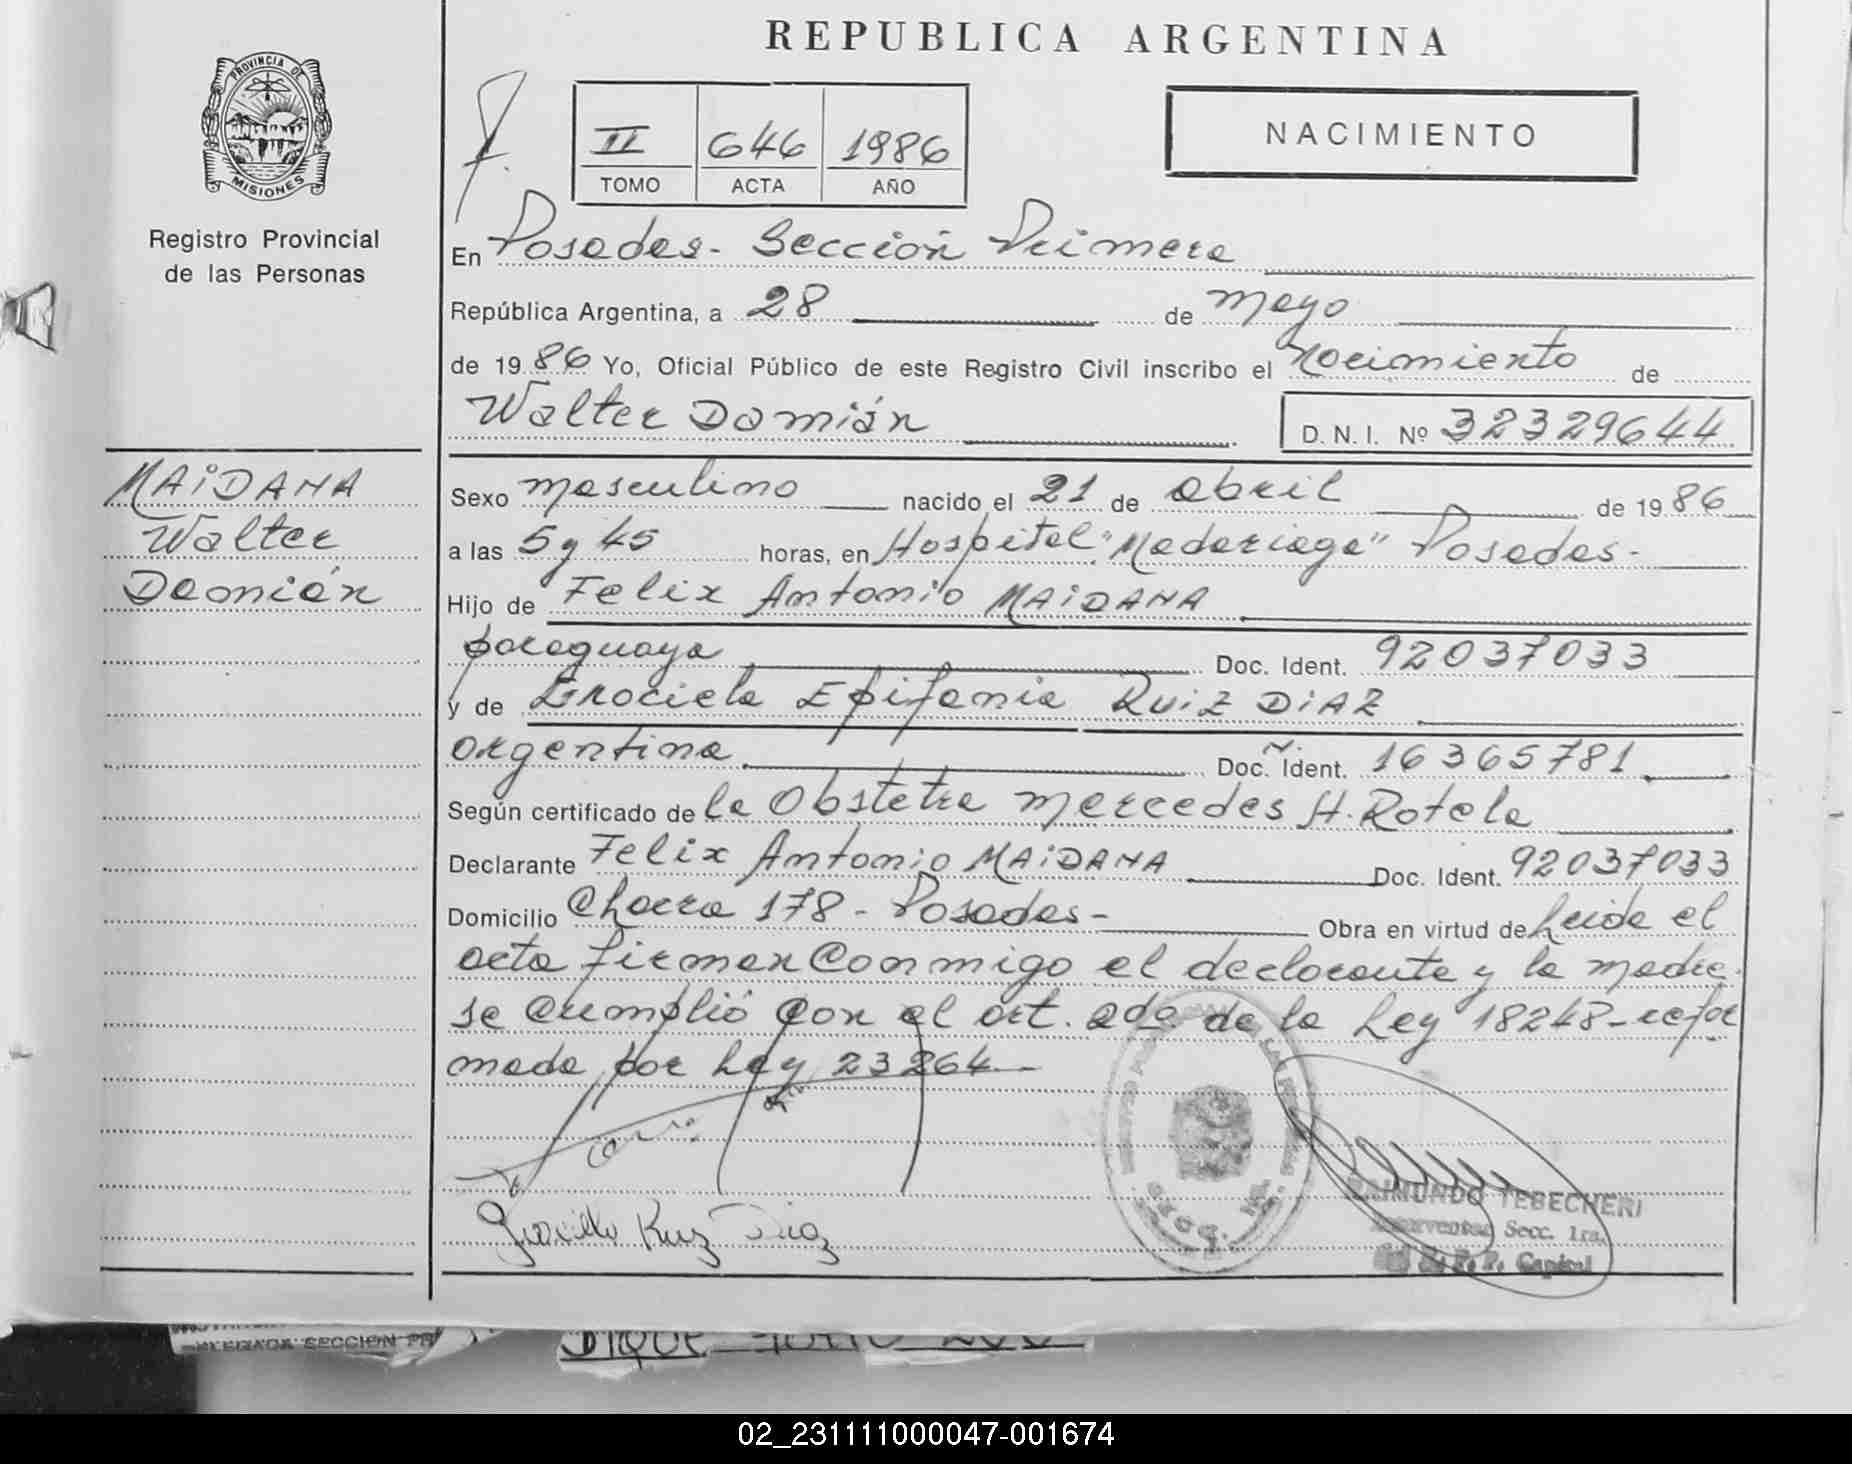 REPUBLICA ARGENTINA
PROVINCIA DE
MISIONES
Registro Provincial
de las Personas
II 646 1986
TOMO ACTA AÑO
NACIMIENTO
En Posadas- Sección Primera
República Argentina, a 28 de mayo
de 1986 Yo, Oficial Público de este Registro Civil inscribo el Nacimiento de
Walter Damián D. N. I. Nº 32329644
MAIDANA
Walter
Damián
Sexo masculino nacido el 21 de abril de 1986
a las 5 y 45 horas, en Hospital "Madariaga" Posadas-
Hijo de Felix Antonio MAIDANA
paraguaya Doc. Ident. 92037033
y de Graciela Epifania RUIZ DIAZ
argentina Doc. Ident. 16365781
Según certificado de la Obstetra Mercedes H. Rotela
Declarante Felix Antonio MAIDANA Doc. Ident. 92037033
Domicilio Chacra 178 - Posadas- Obra en virtud de Leida el
acta firman Conmigo el declarante y la madre.
se cumplió con el art. 2do de la Ley 18248-refor
mada por Ley 23264-
Graciela Ruiz Diaz
RAIMUNDO TEBECHERI
Secc. 1ra.
R. P. P. Capital
SECCION
DIQUE
02_231111000047-001674